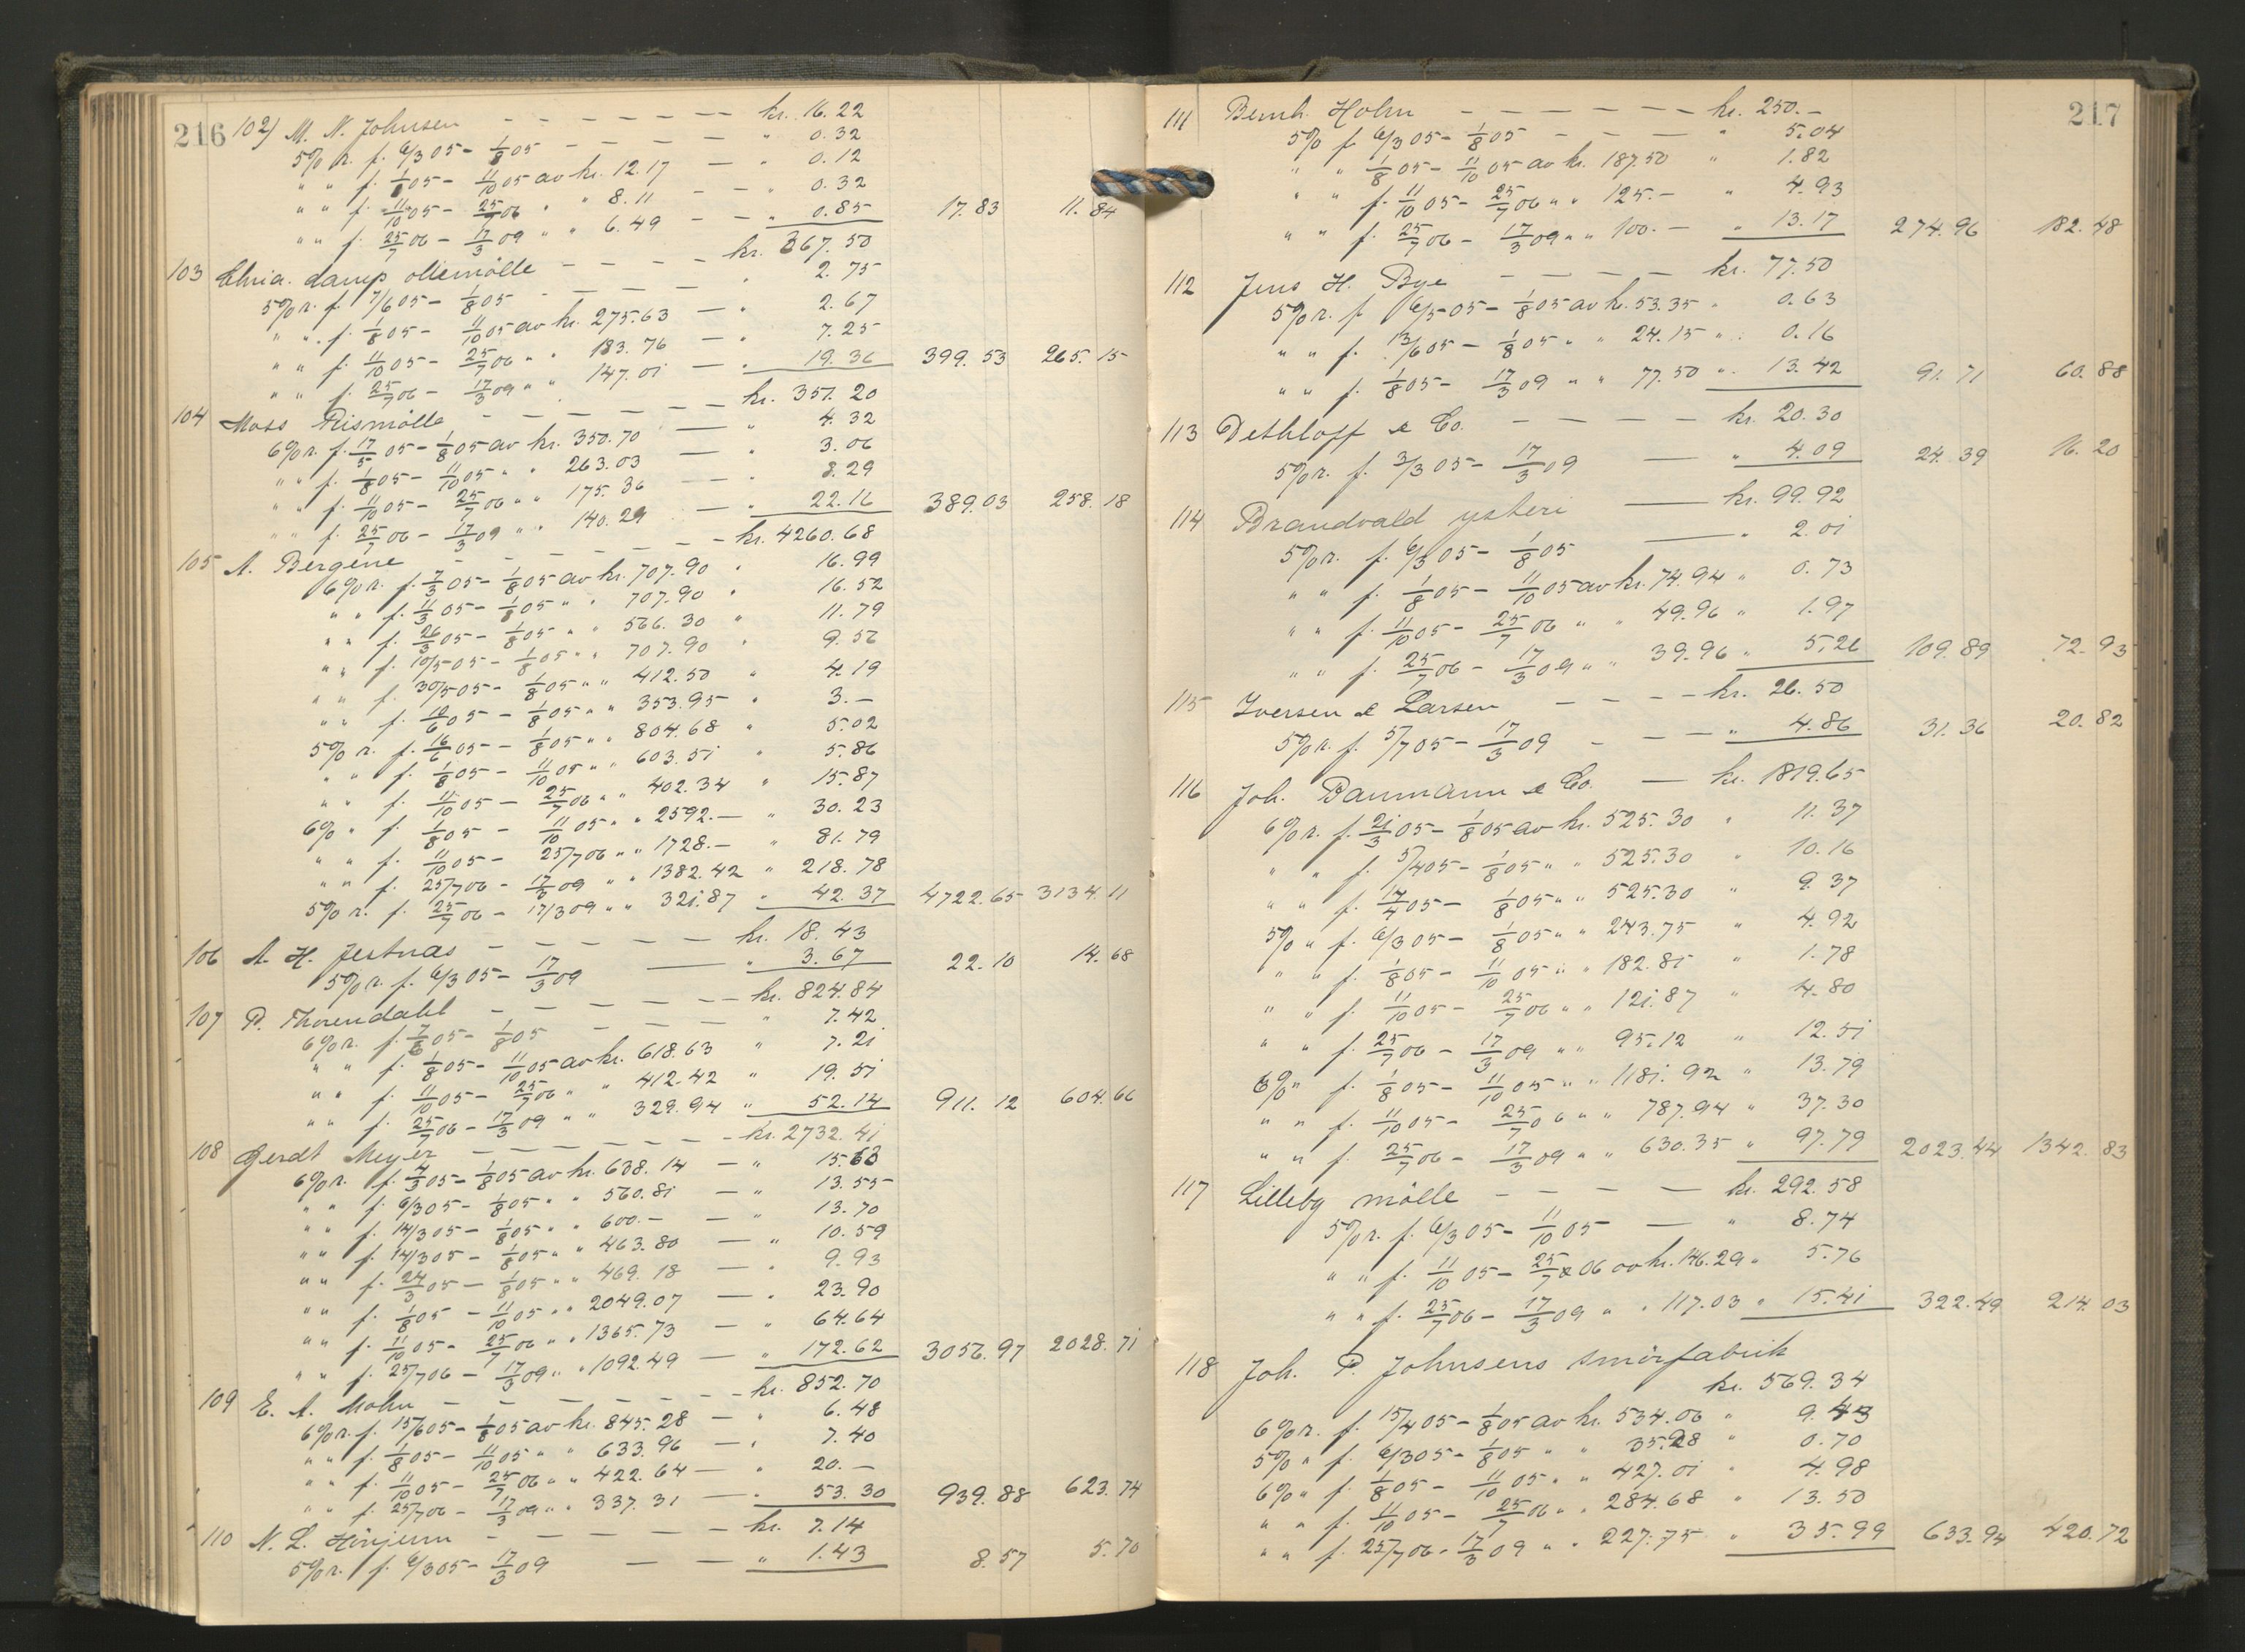 216
102) M. N. Johnsen - - - - - - kr. 16.22
5% r. f. 6/3 05 - 1/8 05 - - - - - " 0.32
" " f. 1/8 05 - 11/10 05 av kr. 12.17 - " 0.12
" " f. 11/10 05 - 25/7 06 " " 8.11 - - " 0.32
" " f. 25/7 06 - 17/3 09 " " 6.49 - - " 0.85 17.83 11.84
103 Chria. damp oliemölle - - - - kr. 367.50
5% r. f. 7/6 05 - 1/8 05 - - - - " 2.75
" " f. 1/8 05 - 11/10 05 av kr. 275.63 - " 2.67
" " f. 11/10 05 - 25/7 06 " " 183.76 - " 7.25
" " f. 25/7 06 - 17/3 09 " " 147.01 - " 19.36 399.53 265.15
104 Moss Rismölle - - - - - kr. 351.20
6% r. f. 17/5 05 - 1/8 05 av kr. 350.70 - " 4.32
" " f. 1/8 05 - 11/10 05 " " 263.03 - " 3.06
" " f. 11/10 05 - 25/7 06 " " 175.36 - " 8.29
" " f. 25/7 06 - 17/3 09 " " 140.29 - " 22.16 389.03 258.18
105 A. Bergene - - - - - kr. 4260.68
6% r. f. 7/3 05 - 1/8 05 av kr. 707.90 " 16.99
" " f. 11/3 05 - 1/8 05 " " 707.90 " 16.52
" " f. 26/3 05 - 1/8 05 " " 566.30 " 11.79
" " f. 10/5 05 - 1/8 05 " " 707.90 " 9.56
" " f. 30/5 05 - 1/8 05 " " 412.50 " 4.19
" " f. 10/6 05 - 1/8 05 " " 353.95 " 3.-
5% r. f. 16/6 05 - 1/8 05 " " 804.68 " 5.02
" " f. 1/8 05 - 11/10 05 " " 603.51 " 5.86
" " f. 11/10 05 - 25/7 06 " " 402.34 " 15.87
6% " f. 1/8 05 - 11/10 05 " " 2592.- " 30.23
" " f. 11/10 05 - 25/7 06 " " 1728.- " 81.79
" " f. 25/7 06 - 17/3 09 " " 1382.42 " 218.78
5% r. f. 25/7 06 - 17/3 09 " " 321.87 " 42.37 4722.65 3134.11
106 A. H. Jestnæs - - - - - kr. 18.43
5% r. f. 6/3 05 - 17/3 09 - " 3.67 22.10 14.68
107 P. Thorendahl - - - - - kr. 824.84
6% r. f. 7/6 05 - 1/8 05 - - - - " 7.42
" " f. 1/8 05 - 11/10 05 av kr. 618.63 " 7.21
" " f. 11/10 05 - 25/7 06 " " 412.42 " 19.51
" " f. 25/7 06 - 17/3 09 " " 329.94 " 52.14 911.12 604.66
108 Gerdt Meyer - - - - - - kr. 2732.41
6% r. f. 4/3 05 - 1/8 05 av kr. 638.14 - " 15.63
" " f. 6/3 05 - 1/8 05 " " 560.81 - " 13.55
" " f. 14/3 05 - 1/8 05 " " 600.- - " 13.70
" " f. 14/3 05 - 1/8 05 " " 463.80 - " 10.59
" " f. 24/3 05 - 1/8 05 " " 469.18 - " 9.93
" " f. 1/8 05 - 11/10 05 " " 2049.07 - " 23.90
" " f. 11/10 05 - 25/7 06 " " 1365.73 - " 64.64
" " f. 25/7 06 - 17/3 09 " " 1092.49 - " 172.62 3056.97 2028.71
109 E. A. Mohn - - - - - - kr. 852.70
6% r. f. 15/6 05 - 1/8 05 av kr. 845.28 - " 6.48
" " f. 1/8 05 - 11/10 05 " " 633.96 - " 7.40
" " f. 11/10 05 - 25/7 06 " " 422.64 - " 20.-
" " f. 25/7 06 - 17/3 09 " " 337.31 - " 53.30 939.88 623.74
110 N. L. Hönjum - - - - - kr. 7.14
5% r. f. 6/3 05 - 17/3 09 - - " 1.43 8.57 5.70
217
111 Bernh. Holm - - - - - - kr. 250.-
5% f. 6/3 05 - 1/8 05 - - - " 5.04
" " f. 1/8 05 - 11/10 05 av kr. 187.50 " 1.82
" " f. 11/10 05 - 25/7 06 " " 125.- " 4.93
" " f. 25/7 06 - 17/3 09 " " 100.- " 13.17 274.96 182.48
112 Jens H. Bye - - - - kr. 77.50
5% r. f. 6/5 05 - 1/8 05 av kr. 53.35 " 0.63
" " f. 13/6 05 - 1/8 05 " " 24.15 " 0.16
" " f. 1/8 05 - 17/3 09 " " 77.50 " 13.42 91.71 60.88
113 Dethloff & Co. - - - - kr. 20.30
5% r. f. 3/3 05 - 17/3 09 - " 4.09 24.39 16.20
114 Brandvald ysteri - kr. 99.92
5% r. f. 6/3 05 - 1/8 05 - " 2.01
" " f. 1/8 05 - 11/10 05 av kr. 74.94 " 0.73
" " f. 11/10 05 - 25/7 06 " " 49.96 " 1.97
" " f. 25/7 06 - 17/3 09 " " 39.96 " 5.26 109.89 72.93
115 Iversen & Larsen - - - kr. 26.50
5% r. f. 5/7 05 - 17/3 09 - - - " 4.86 31.36 20.82
116 Joh. Baumann & Co. - kr. 1819.65
6% r. f. 21/3 05 - 1/8 05 av kr. 525.30 " 11.37
" " f. 5/4 05 - 1/8 05 " " 525.30 " 10.16
" " f. 14/4 05 - 1/8 05 " " 525.30 " 9.37
5% " f. 6/3 05 - 1/8 05 " " 243.75 " 4.92
" " f. 1/8 05 - 11/10 05 " " 182.81 " 1.78
" " f. 11/10 05 - 25/7 06 " " 121.87 " 4.80
" " f. 25/7 06 - 17/3 09 " " 95.12 " 12.51
6% " f. 1/8 05 - 11/10 05 " " 1181.92 " 13.79
" " f. 11/10 05 - 25/7 06 " " 787.94 " 37.30
" " f. 25/7 06 - 17/3 09 " " 630.35 " 97.79 2023.44 1342.83
117 Lilleby mölle - - - - kr. 292.58
5% r. f. 6/3 05 - 11/10 05 - " 8.74
" " f. 11/10 05 - 25/7 06 av kr. 146.29 " 5.76
" " f. 25/7 06 - 17/3 09 " " 117.03 " 15.41 322.49 214.03
118 Joh. P. Johnsens smörfabrik
kr. 569.34
6% r. f. 15/4 05 - 1/8 05 av kr. 534.06 " 9.43
5% " f. 6/3 05 - 1/8 05 " " 35.28 " 0.70
6% " f. 1/8 05 - 11/10 05 " " 427.01 " 4.98
" " f. 11/10 05 - 25/7 06 " " 284.68 " 13.50
" " f. 25/7 06 - 17/3 09 " " 227.75 " 35.99 633.94 420.72